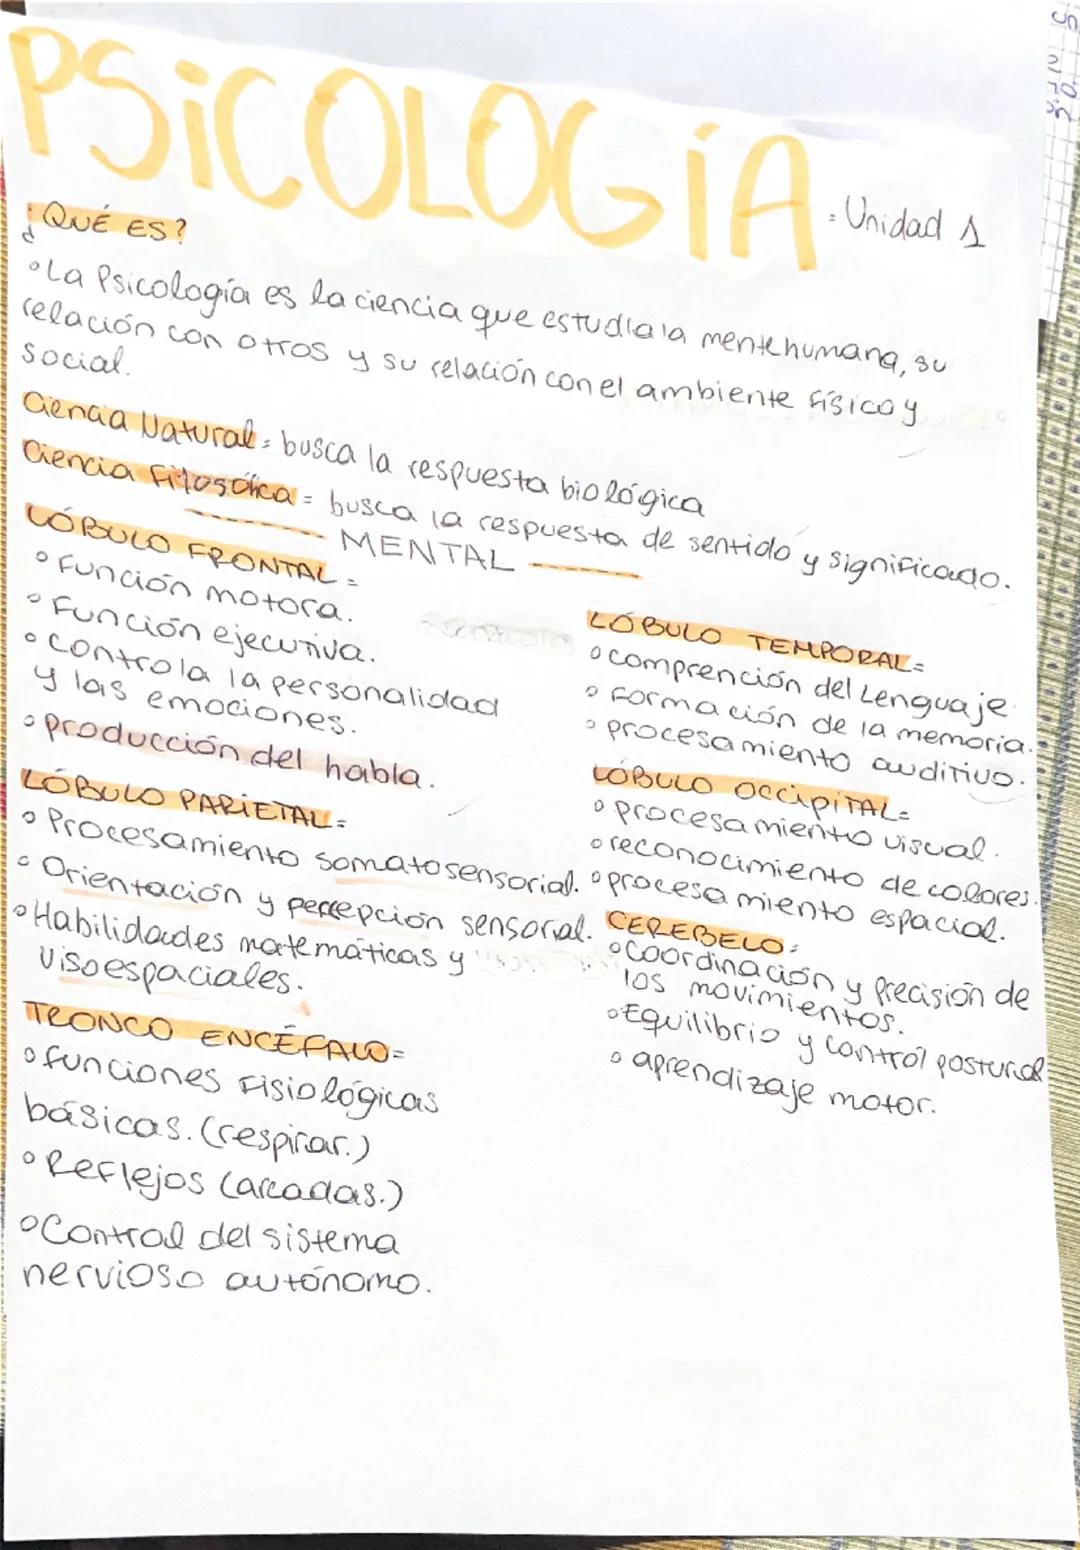 PSiCOLOGÍA = Unidad 1
¿QUÉ ES?
°La Psicología es la ciencia que estudia la mente humana, su
relación con otros y su relación con el ambiente físico y
social.
Ciencia Natural = busca la respuesta biológica
Ciencia filosófica = busca la respuesta de sentido y significado.
MENTAL
LÓBULO FRONTAL =
° Función motora.
° Función ejecutiva.
° controla la personalidad
y las emociones.
° producción del habla.
LÓBULO PARIETAL =
° Procesamiento somatosensorial.
° Orientación y percepción sensorial.
° Habilidades matemáticas y
visoespaciales.
TRONCO ENCÉFALO =
° funciones fisiológicas
básicas. (respirar.)
° Reflejos (arcadas.)
° Control del sistema
nervioso autónomo.
LÓBULO TEMPORAL =
° comprención del Lenguaje.
° Formación de la memoria.
° procesamiento auditivo.
LÓBULO OCCiPiTAL =
° procesamiento visual.
° reconocimiento de colores.
° procesamiento espacial.
CEREBELO =
° Coordinación y precisión de
los movimientos.
° Equilibrio y control postural
° aprendizaje motor.